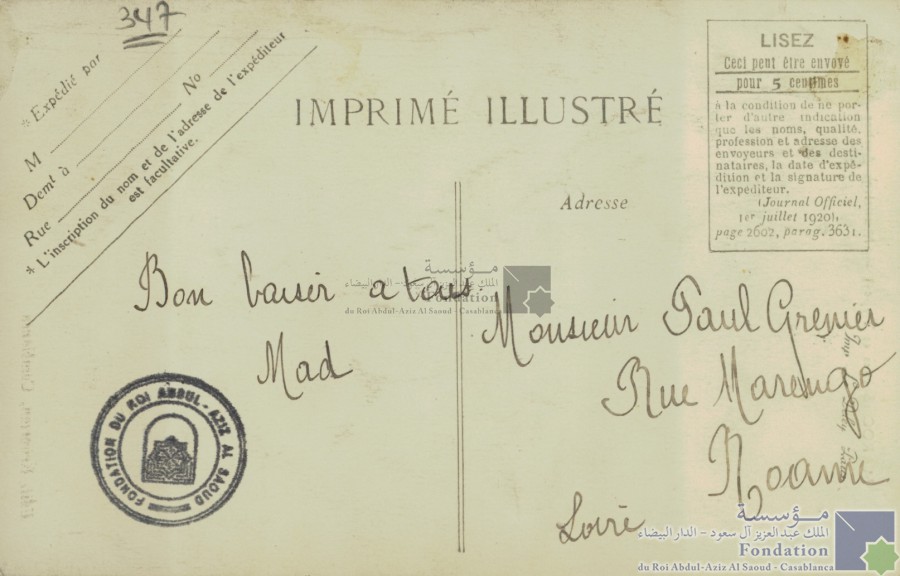 347
* Expédié par
M
Demt à No
Rue
* L'inscription du nom et de l'adresse de l'expéditeur
est facultative.
IMPRIMÉ ILLUSTRÉ
LISEZ
Ceci peut être envoyé
pour 5 centimes
à la condition de ne por-
ter d'autre indication
que les noms, qualité,
profession et adresse des
envoyeurs et des desti-
nataires, la date d'expé-
dition et la signature de
l'expéditeur.
(Journal Officiel,
1er juillet 1920),
page 2602, parag. 3631.
Adresse
Bon baiser a tous.
Mad
Monsieur Paul Grenier
Rue Marengo
Roanne
Loire
FONDATION DU ROI ABDUL-AZIZ AL SAOUD
مؤسسة
الملك عبد العزيز آل سعود - الدار البيضاء
Fondation
du Roi Abdul-Aziz Al Saoud - Casablanca
مؤسسة
الملك عبد العزيز آل سعود - الدار البيضاء
Fondation
du Roi Abdul-Aziz Al Saoud - Casablanca